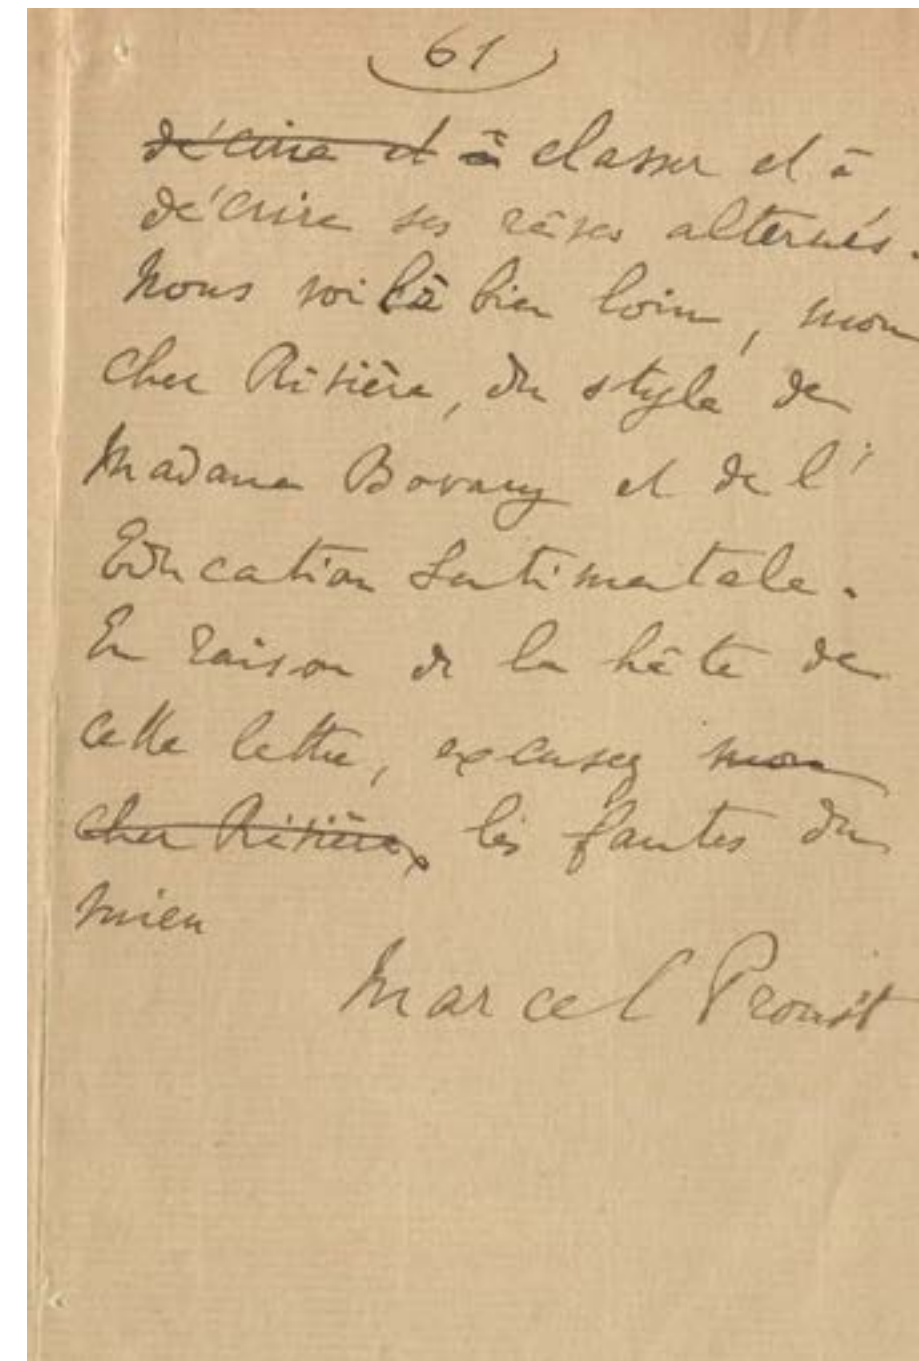 61
décrire et à classer et à
décrire ses rêves alternés.
Nous voilà bien loin, mon
cher Rivière, du style de
Madame Bovary et de l'
Education Sentimentale.
En raison de la hâte de
cette lettre, excusez mon
cher Rivière, les fautes du
mien
Marcel Proust